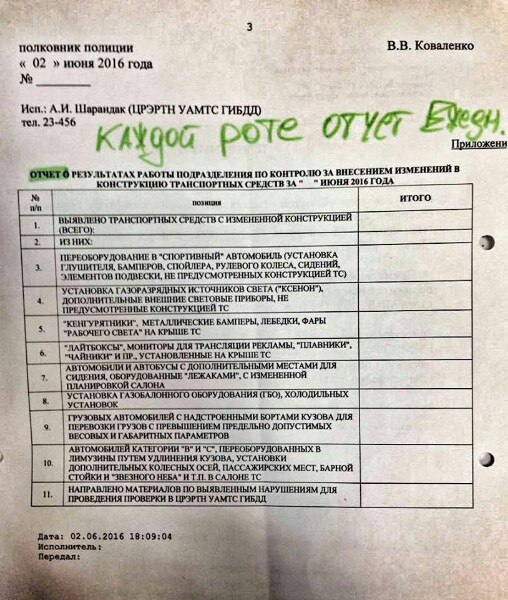 3
полковник полиции В.В. Коваленко
« 02 » июня 2016 года
№
Исп.: А.И. Шарандак (ЦРЭРТН УАМТС ГИБДД)
тел. 23-456
КАЖДОЙ РОТЕ ОТЧЕТ Ежедн.
Приложени
ОТЧЕТ О РЕЗУЛЬТАТАХ РАБОТЫ ПОДРАЗДЕЛЕНИЯ ПО КОНТРОЛЮ ЗА ВНЕСЕНИЕМ ИЗМЕНЕНИЙ В
КОНСТРУКЦИЮ ТРАНСПОРТНЫХ СРЕДСТВ ЗА " " ИЮНЯ 2016 ГОДА
№ п/п позиция ИТОГО
1. ВЫЯВЛЕНО ТРАНСПОРТНЫХ СРЕДСТВ С ИЗМЕНЕННОЙ КОНСТРУКЦИЕЙ
(ВСЕГО):
2. ИЗ НИХ:
3. ПЕРЕОБОРУДОВАНИЕ В "СПОРТИВНЫЙ" АВТОМОБИЛЬ (УСТАНОВКА
ГЛУШИТЕЛЯ, БАМПЕРОВ, СПОЙЛЕРА, РУЛЕВОГО КОЛЕСА, СИДЕНИЙ,
ЭЛЕМЕНТОВ ПОДВЕСКИ, НЕ ПРЕДУСМОТРЕННЫХ КОНСТРУКЦИЕЙ ТС)
4. УСТАНОВКА ГАЗОРАЗРЯДНЫХ ИСТОЧНИКОВ СВЕТА ("КСЕНОН"),
ДОПОЛНИТЕЛЬНЫЕ ВНЕШНИЕ СВЕТОВЫЕ ПРИБОРЫ, НЕ
ПРЕДУСМОТРЕННЫЕ КОНСТРУКЦИЕЙ ТС
5. "КЕНГУРЯТНИКИ", МЕТАЛЛИЧЕСКИЕ БАМПЕРЫ, ЛЕБЕДКИ, ФАРЫ
"РАБОЧЕГО СВЕТА" НА КРЫШЕ ТС
6. "ЛАЙТБОКСЫ", МОНИТОРЫ ДЛЯ ТРАНСЛЯЦИИ РЕКЛАМЫ, "ПЛАВНИКИ",
"ЧАЙНИКИ" И ПР., УСТАНОВЛЕННЫЕ НА КРЫШЕ ТС
7. АВТОМОБИЛИ И АВТОБУСЫ С ДОПОЛНИТЕЛЬНЫМИ МЕСТАМИ ДЛЯ
СИДЕНИЯ, ОБОРУДОВАННЫЕ "ЛЕЖАКАМИ", С ИЗМЕНЕННОЙ
ПЛАНИРОВКОЙ САЛОНА
8. УСТАНОВКА ГАЗОБАЛОННОГО ОБОРУДОВАНИЯ (ГБО), ХОЛОДИЛЬНЫХ
УСТАНОВОК
9. ГРУЗОВЫХ АВТОМОБИЛЕЙ С НАДСТРОЕННЫМИ БОРТАМИ КУЗОВА ДЛЯ
ПЕРЕВОЗКИ ГРУЗОВ С ПРЕВЫШЕНИЕМ ПРЕДЕЛЬНО ДОПУСТИМЫХ
ВЕСОВЫХ И ГАБАРИТНЫХ ПАРАМЕТРОВ
10. АВТОМОБИЛЕЙ КАТЕГОРИИ "В" И "С", ПЕРЕОБОРУДОВАННЫХ В
ЛИМУЗИНЫ ПУТЕМ УДЛИНЕНИЯ КУЗОВА, УСТАНОВКИ
ДОПОЛНИТЕЛЬНЫХ КОЛЕСНЫХ ОСЕЙ, ПАССАЖИРСКИХ МЕСТ, БАРНОЙ
СТОЙКИ И "ЗВЕЗДНОГО НЕБА" И Т.П. В САЛОНЕ ТС
11. НАПРАВЛЕНО МАТЕРИАЛОВ ПО ВЫЯВЛЕННЫМ НАРУШЕНИЯМ ДЛЯ
ПРОВЕДЕНИЯ ПРОВЕРКИ В ЦРЭРТН УАМТС ГИБДД
Дата: 02.06.2016 18:09:04
Исполнитель:
Передал: